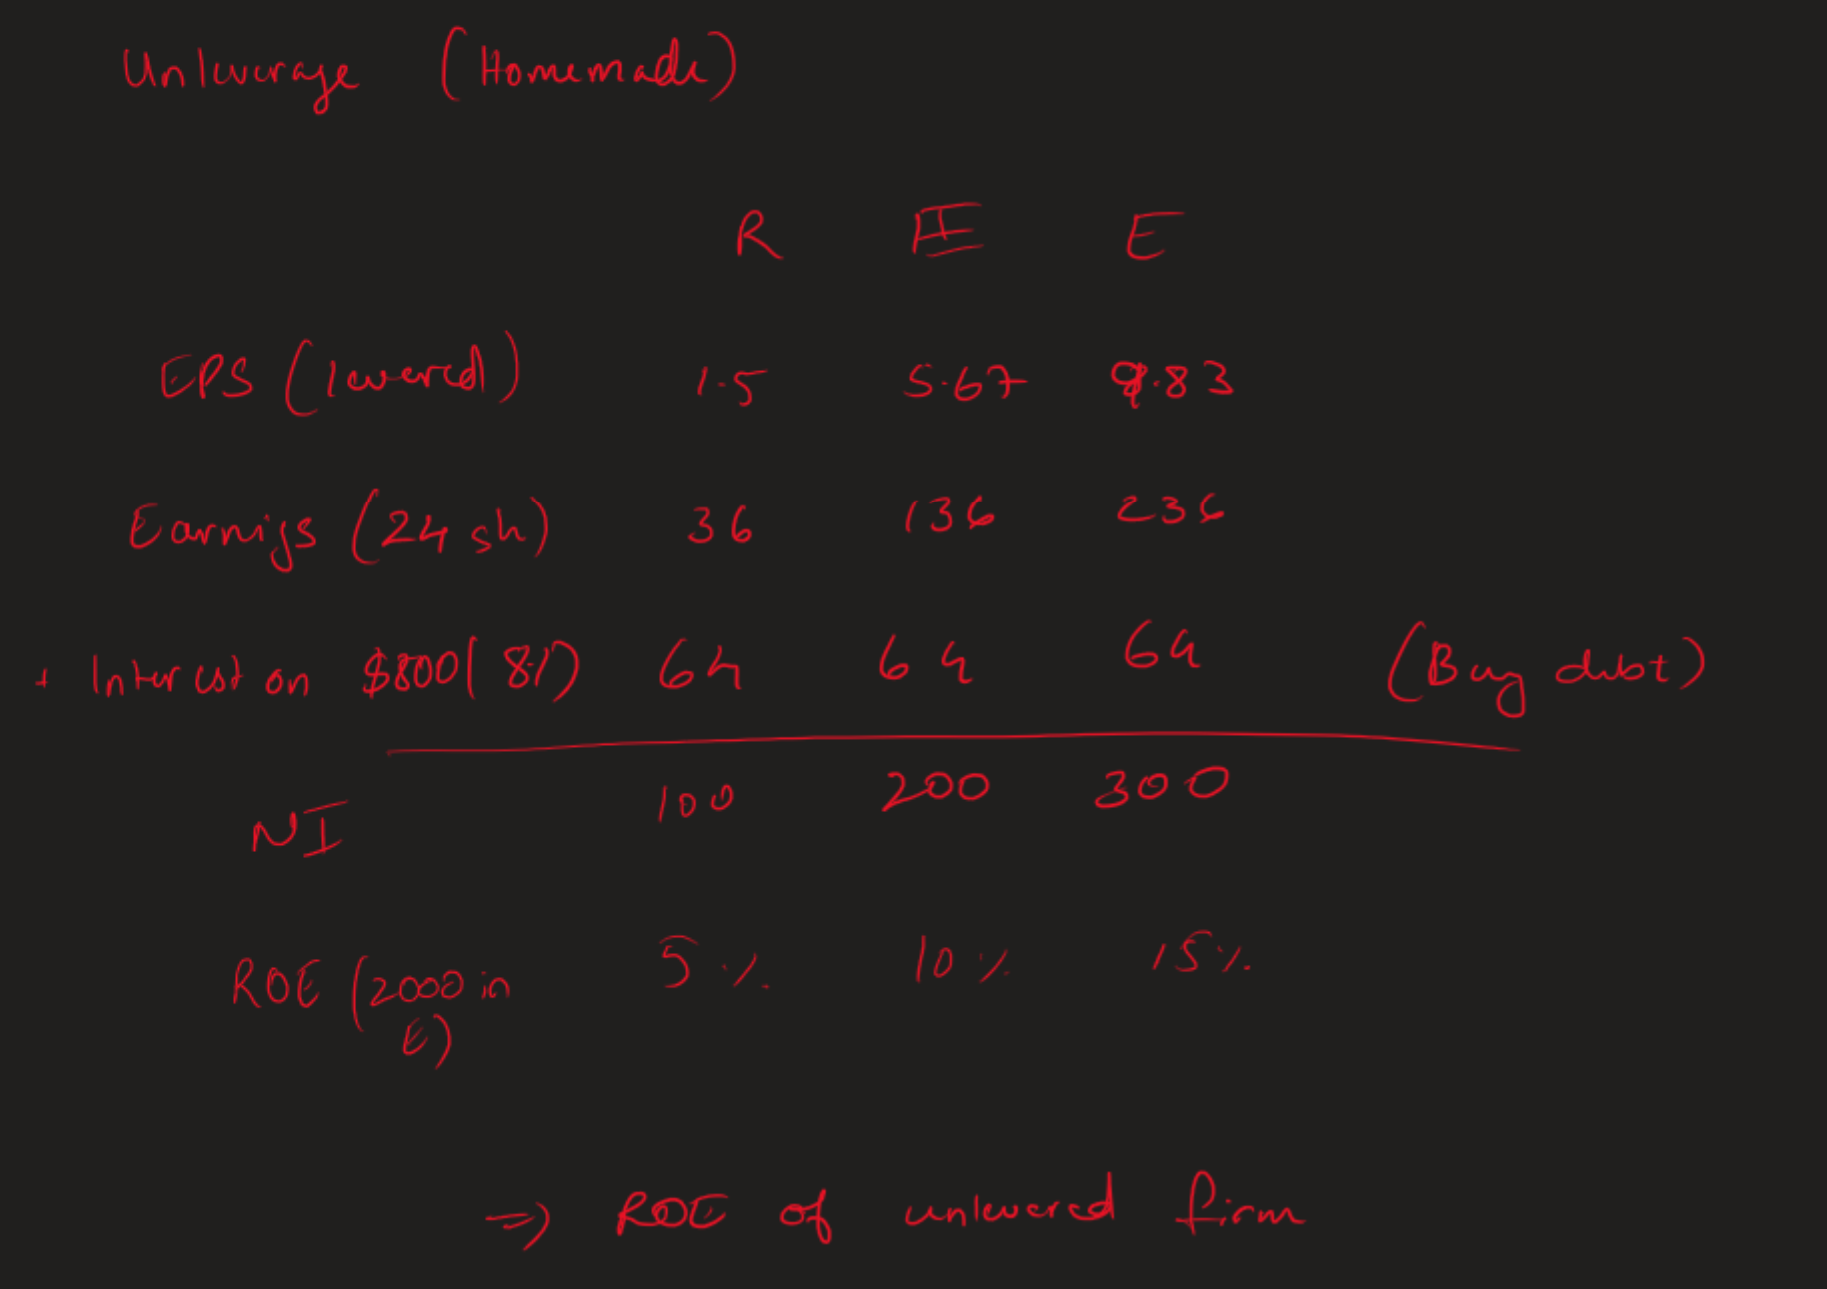 Unleverage (Homemade)
R E E
EPS (levered) 1.5 5.67 9.83
Earnigs (24 sh) 36 136 236
+ Interest on $800 (8%) 64 64 64 (Buy debt)
NI 100 200 300
ROE (2000 in 5% 10% 15%
E)
=> ROE of unlevered firm